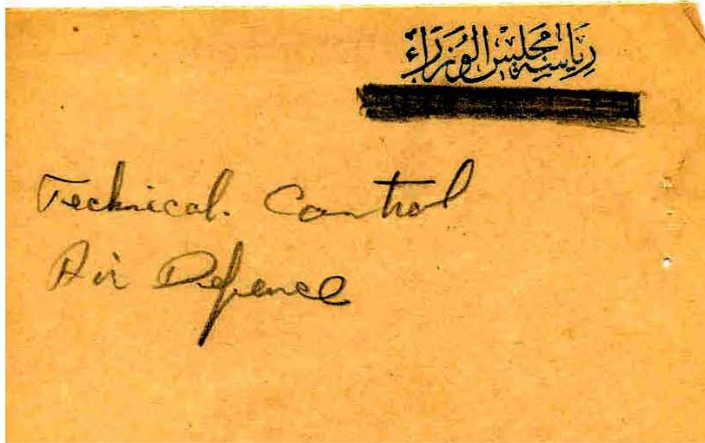 رياسة مجلس الوزراء
Technical. Control
Air Defence